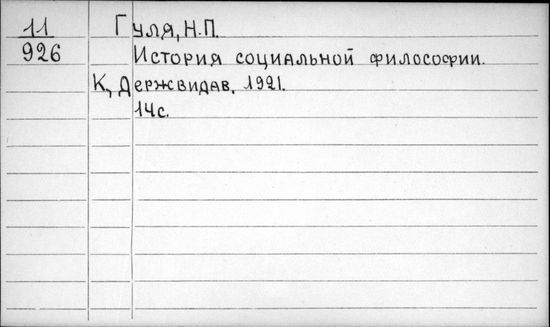 11 Гуля, Н.П.
926 История социальной философии.
К, Держвидав, 1921.
14с.